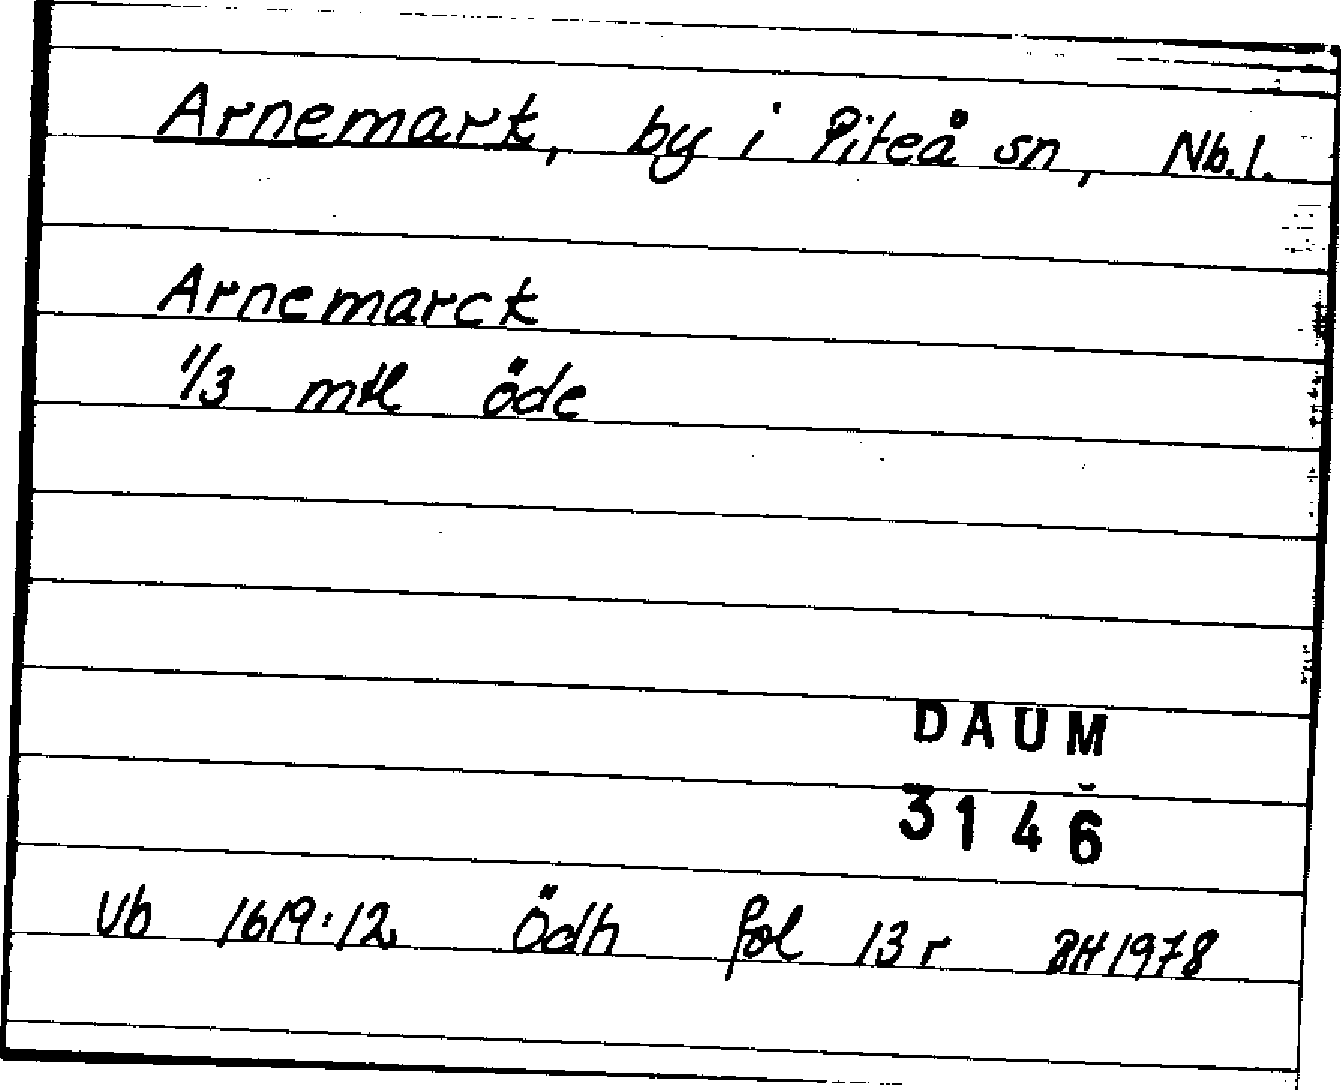 Arnemark, by i Piteå sn, Nb.l.
Arnemarck
1/3 mtl öde
DAUM
3146
Vb 1619:12 Ödh fol 13 r BH 1978